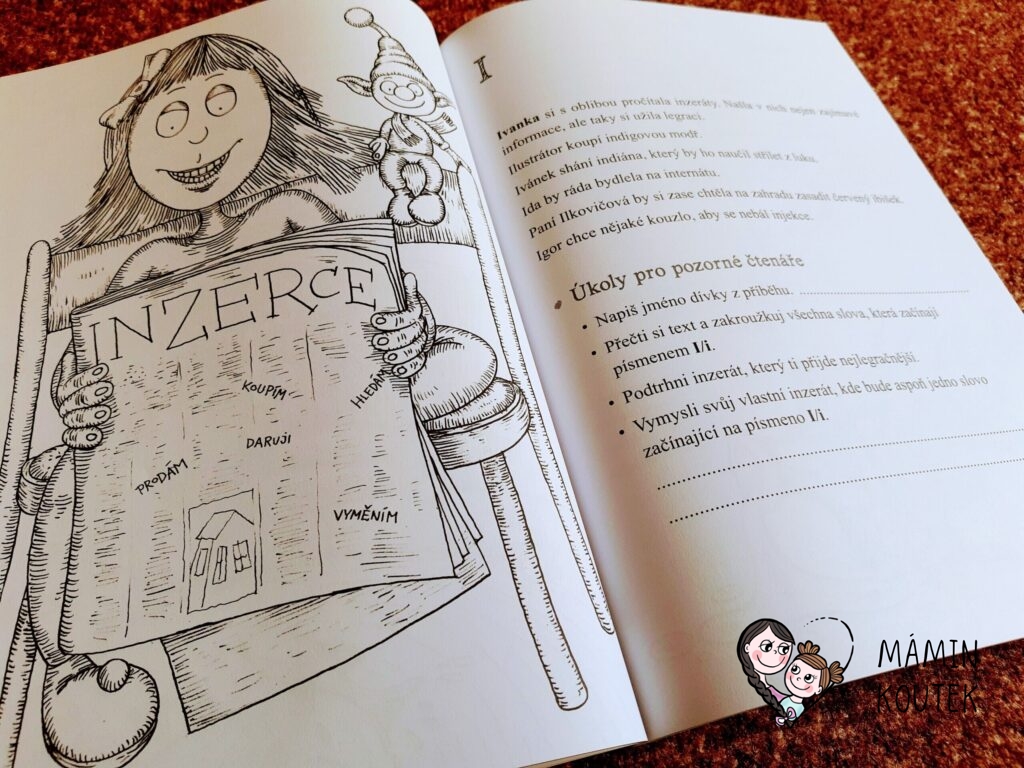 INZERCE
KOUPÍM
HLEDÁM
DARUJI
PRODÁM
VYMĚNÍM
I
Ivanka si s oblibou pročítala inzeráty. Našla v nich nejen zajímavé
informace, ale taky si užila legraci.
Ilustrátor koupí indigovou modř.
Ivánek shání indiána, který by ho naučil střílet z luku.
Ida by ráda bydlela na internátu.
Paní Ilkovičová by si zase chtěla na zahradu zasadit červený ibišek.
Igor chce nějaké kouzlo, aby se nebál injekce.
Úkoly pro pozorné čtenáře
• Napiš jméno dívky z příběhu.
• Přečti si text a zakroužkuj všechna slova, která začínají
písmenem I/i.
• Podtrhni inzerát, který ti přijde nejlegračnější.
• Vymysli svůj vlastní inzerát, kde bude aspoň jedno slovo
začínající na písmeno I/i.
MÁMIN
KOUTEK